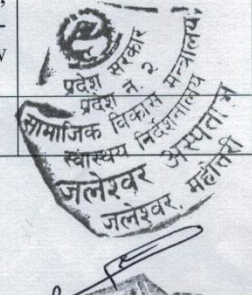 प्रदेश सरकार
प्रदेश नं. २
सामाजिक विकास मन्त्रालय,
स्वास्थ्य निर्देशनालय
जलेश्वर अस्पताल
जलेश्वर, महोत्तरी